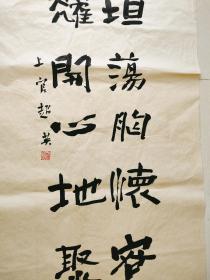 坦蕩胸懷容
耀開心地聚
上官超英